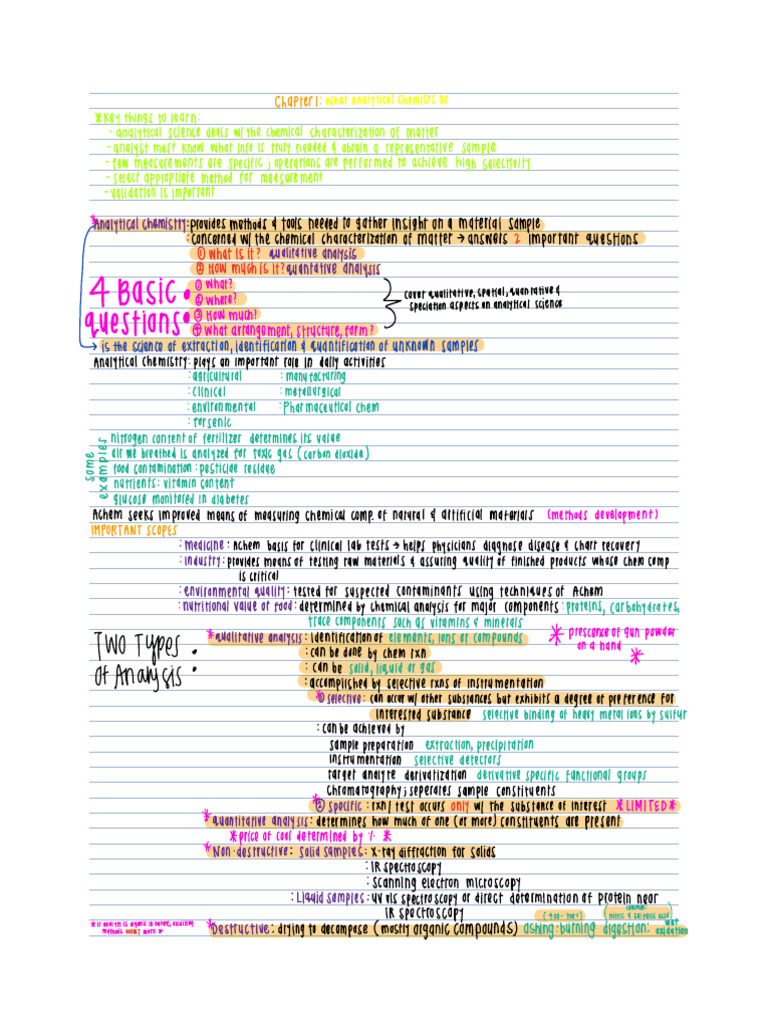 Chapter 1: What Analytical Chemists Do
*Key things to learn:
- analytical science deals w/ the chemical characterization of matter
- analyst must know what info is truly needed & obtain a representative sample
- few measurements are specific ; operations are performed to achieve high selectivity
- select appropriate method for measurement
- validation is important
*Analytical chemistry: provides methods & tools needed to gather insight on a material sample
: concerned w/ the chemical characterization of matter → answers 2 important questions
① What is it? qualitative analysis
② How much is it? quantative analysis
4 Basic questions
① what?
② where?
③ How much?
④ what arrangement, structure, form?
cover qualitative, spatial, quantative &
speciation aspects on analytical science
→ is the science of extraction, identification & quantification of unknown samples
Analytical Chemistry: plays an important role in daily activities
: agricultural : manufacturing
: clinical : metallurgical
: environmental : Pharmaceutical chem
: forsenic
some examples
nitrogen content of fertilizer determines its value
air we breathed is analyzed for toxic gas (carbon dioxide)
food contamination : pesticide residue
nutrients: vitamin content
glucose monitored in diabetes
Achem seeks improved means of measuring chemical comp. of natural & artificial materials (methods development)
IMPORTANT SCOPES
: medicine: Achem basis for clinical lab tests → helps physicians diagnose disease & chart recovery
: industry: provides means of testing raw materials & assuring quality of finished products whose chem comp
is critical
: environmental quality: tested for suspected contaminants using techniques of Achem
: nutritional value of food: determined by chemical analysis for major components : proteins, carbohydrates,
trace components such as vitamins & minerals
TWO Types of Analysis
*qualitative analysis : identification of elements, ions or compounds
* prescence of gun powder
on a hand *
: can be done by chem rxn
: can be solid, liquid or gas
: accomplished by selective rxns of instrumentation
*① selective: can occur w/ other substances but exhibits a degree of preference for
interested substance selective binding of heavy metal ions by sulfur
: can be achieved by
sample preparation extraction, precipitation
instrumentation selective detectors
target analyte derivatization derivative specific functional groups
chromatography ; seperates sample constituents
*② specific : rxn/ test occurs only w/ the substance of interest *LIMITED*
*quantitative analysis : determines how much of one (or more) constituents are present
*price of coal determined by % *
*Non-destructive: Solid samples : X-ray diffraction for solids
: IR spectroscopy
: Scanning electron microscopy
: Liquid samples: UV vis spectroscopy or direct determination of protein near
IR spectroscopy
*Destructive : drying to decompose (mostly organic compounds) ashing: burning digestion: wet
oxidation